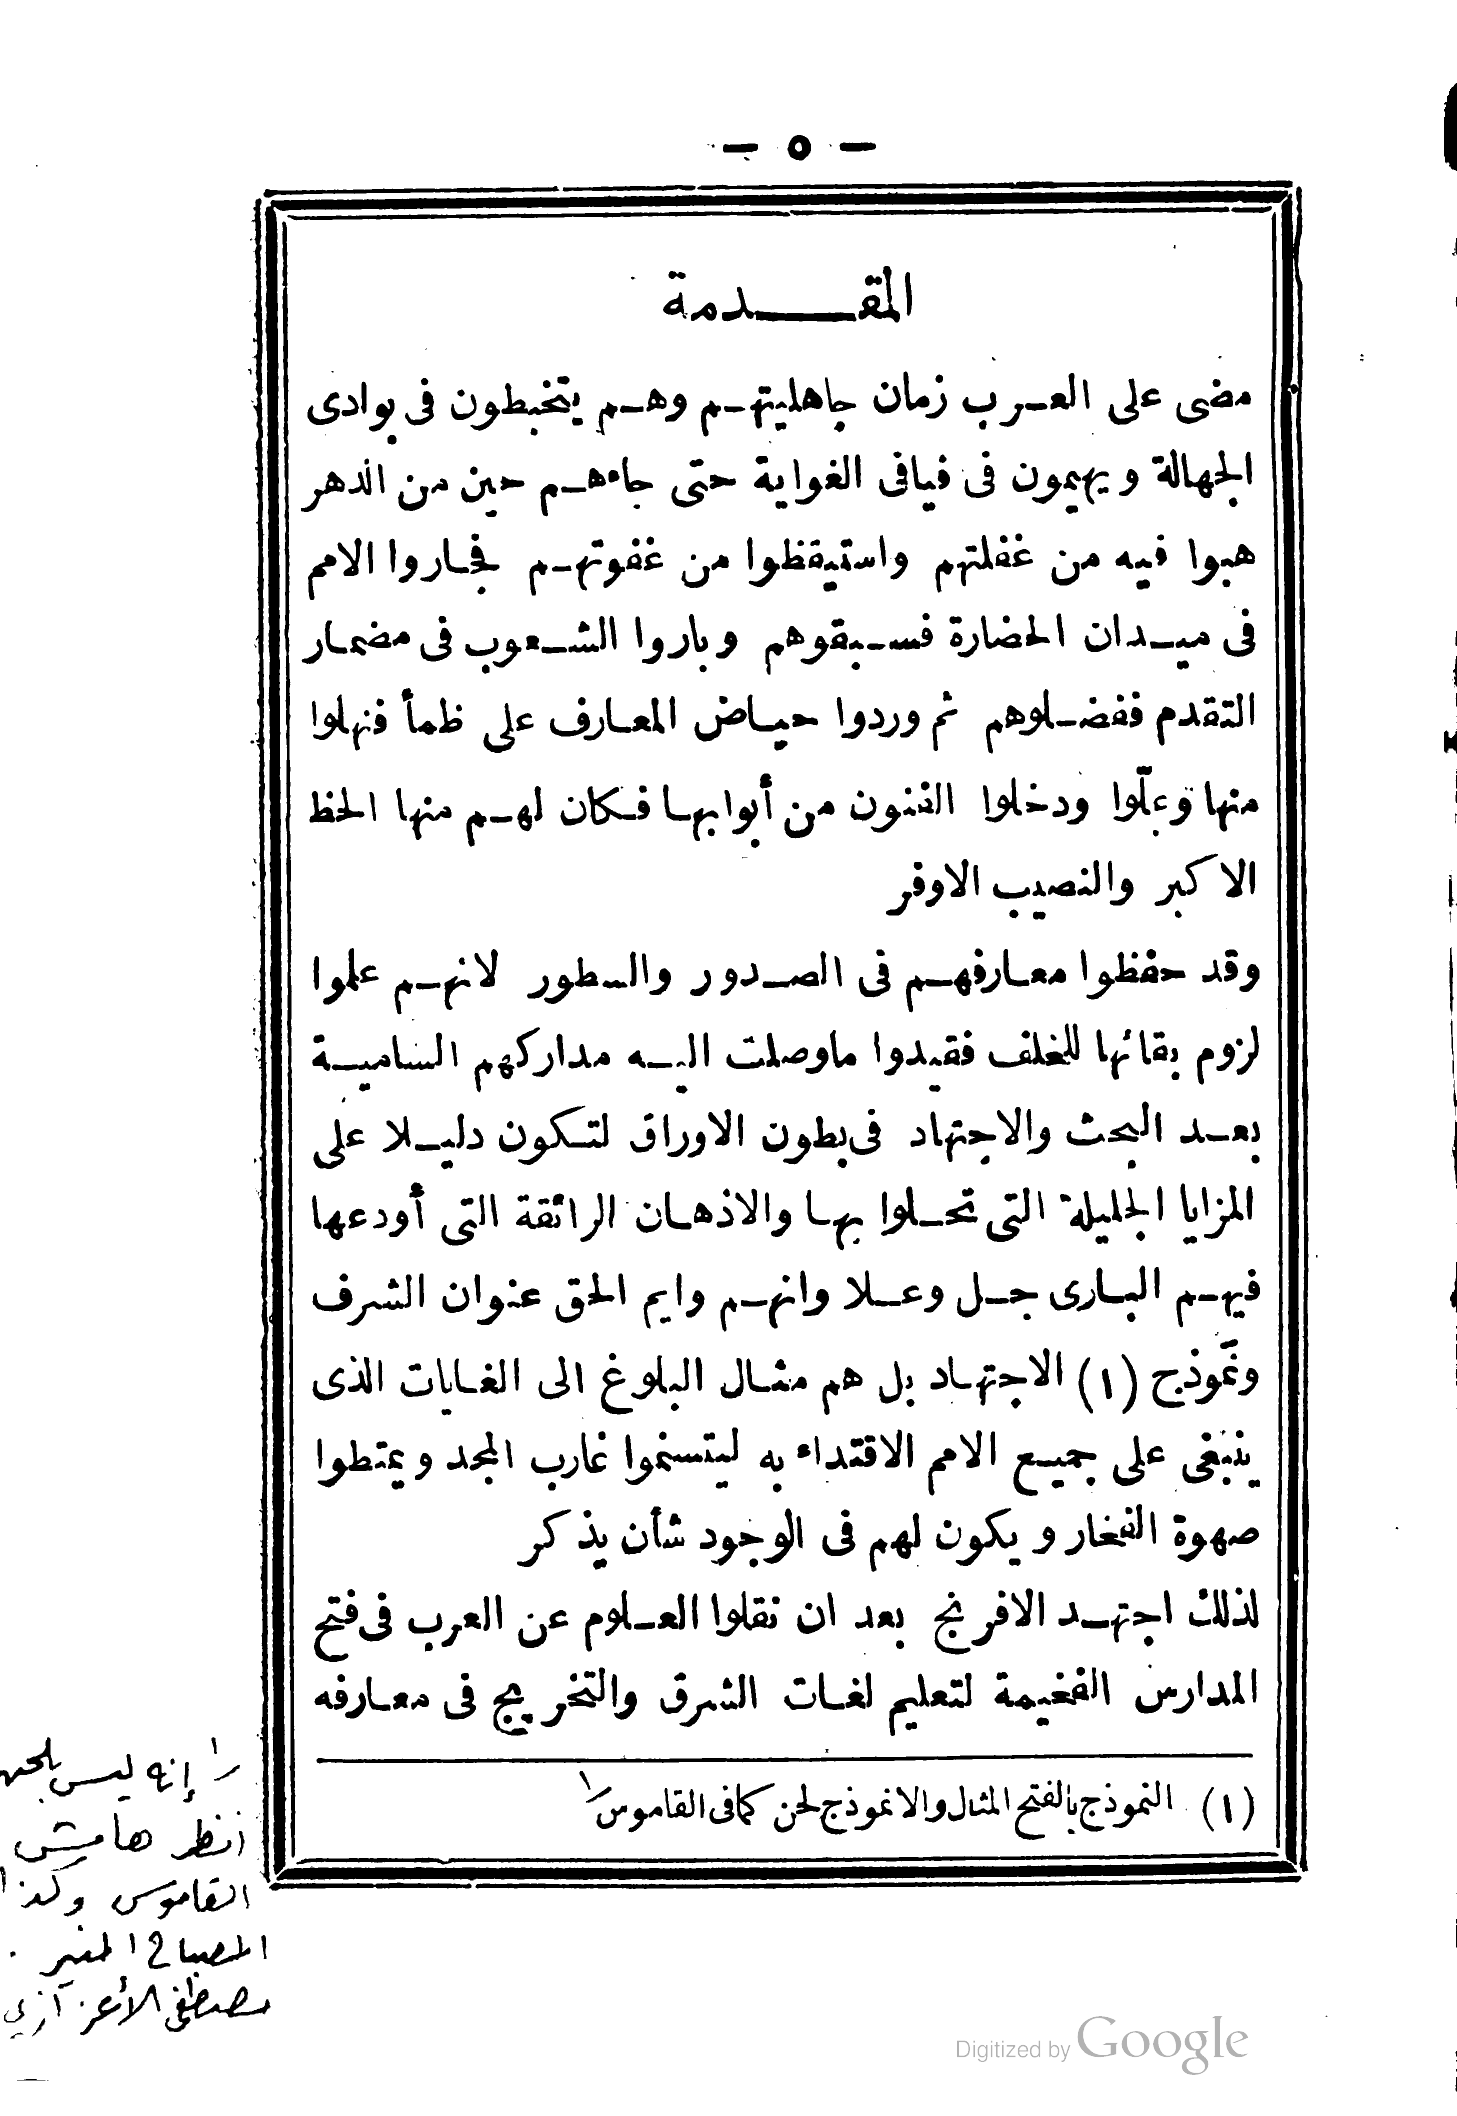 — ٥ —
المقدمة
مضى على العرب زمان جاهليتهم وهم يتخبطون فى بوادى
الجهالة ويهيمون فى فيافى الغواية حتى جاءهم حين من الدهر
هبوا فيه من غفلتهم واستيقظوا من غفوتهم فجاروا الامم
فى ميدان الحضارة فسبقوهم وباروا الشعوب فى مضمار
التقدم ففضلوهم ثم وردوا حياض المعارف على ظمأ فنهلوا
منها وعلّوا ودخلوا الفنون من أبوابها فكان لهم منها الحظ
الاكبر والنصيب الاوفر
وقد حفظوا معارفهم فى الصدور والسطور لانهم علموا
لزوم بقائها للخلف فقيدوا ماوصلت اليه مداركهم السامية
بعد البحث والاجتهاد فى بطون الاوراق لتكون دليلا على
المزايا الجليلة التى تحلوا بها والاذهان الرائقة التى أودعها
فيهم البارى جل وعلا وانهم وايم الحق عنوان الشرف
ونَّموذج (١) الاجتهاد بل هم مثال البلوغ الى الغايات الذى
ينبغى على جميع الامم الاقتداء به ليتسنموا غارب المجد ويمتطوا
صهوة الفخار ويكون لهم فى الوجود شأن يذكر
لذلك اجتهد الافرنج بعد ان نقلوا العلوم عن العرب فى فتح
المدارس الفخيمة لتعليم لغات الشرق والتخريج فى معارفه
(١) النموذج بالفتح المثال والانموذج لحن كمافى القاموس
إنه ليس بلحن
انظر هامش
القاموس وكذا
المصباح المنير .
مصطفى
Digitized by Google